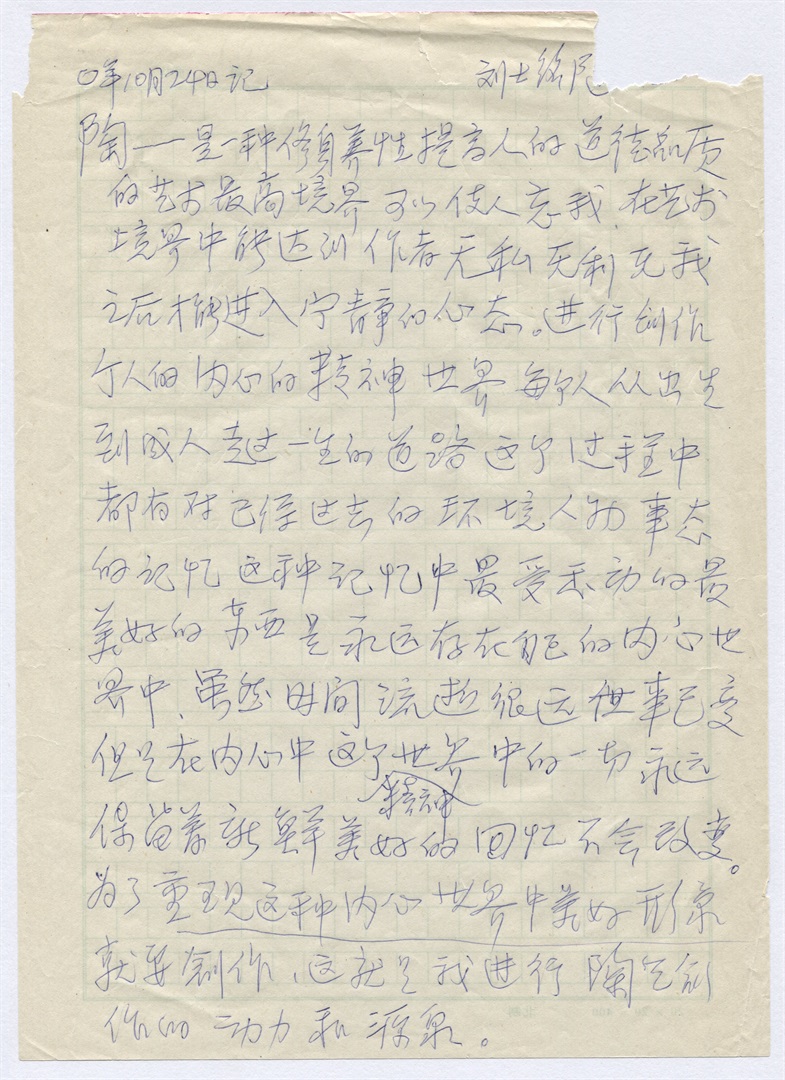 0年10月24日记 刘士铭
陶——是一种修身养性提高人的道德品质
的艺术最高境界 可以使人忘我 在艺术
境界中能达到 作者无私无利无我
之后才能进入宁静的心态。进行创作
个人的内心的精神世界 每个人从出生
到成人走过一生的道路 这个过程中
都有对已经过去的环境人物事态
的记忆 这种记忆中最受感动的最
美好的东西是永远存在自己的内心世
界中、虽然时间流逝很远 世事已变
但是在内心中这个世界中的一切 永远
精神
保留着新鲜美好的回忆不会改变。
为了重现这种内心世界中美好形象
就要創作、这就是我进行陶艺创
作的动力和源泉。